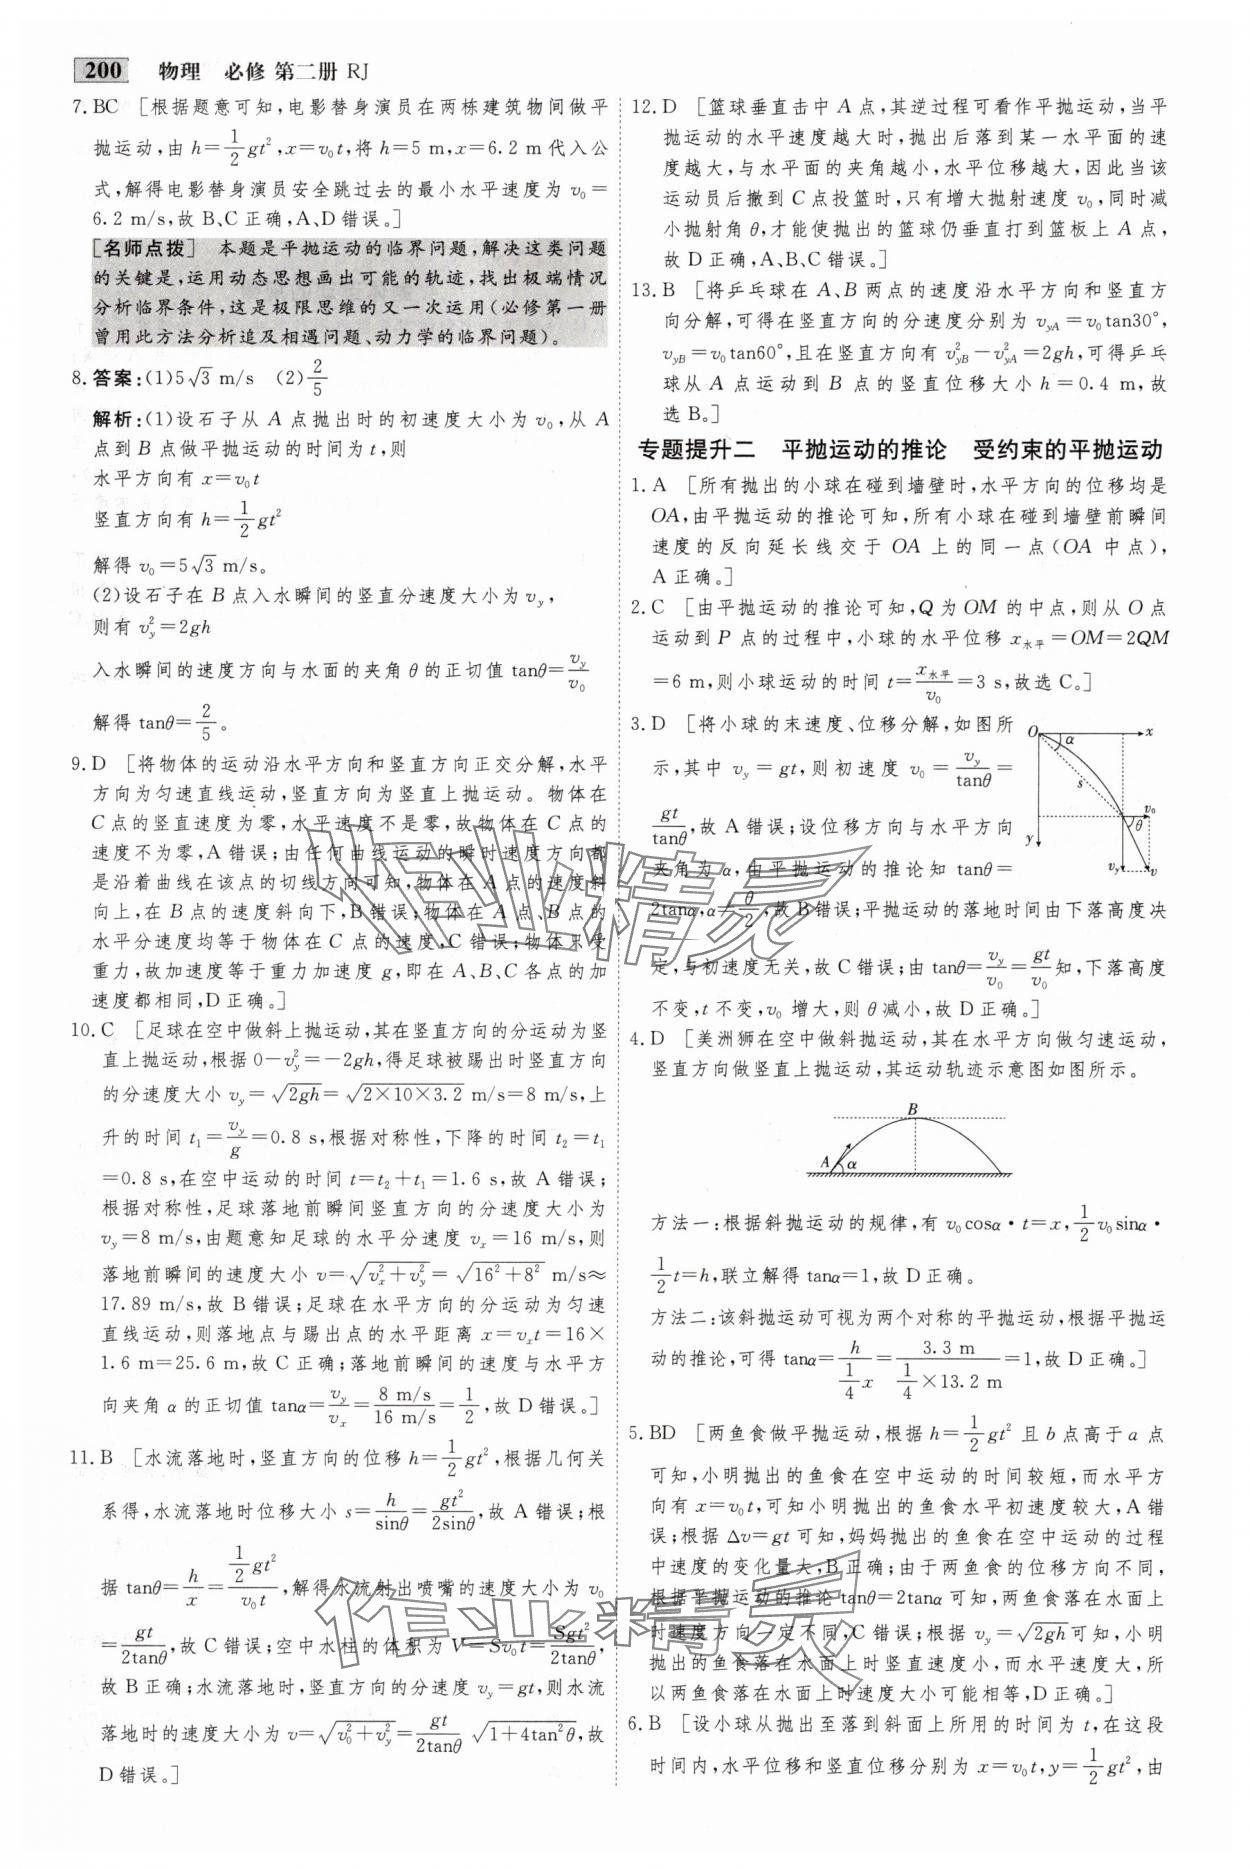 200 物理 必修 第二册 RJ
7. BC [根据题意可知,电影替身演员在两栋建筑物间做平
抛运动,由 h=1/2gt²,x=v₀t,将 h=5 m,x=6.2 m代入公
式,解得电影替身演员安全跳过去的最小水平速度为 v₀=
6.2 m/s,故 B、C 正确,A、D 错误。]
[名师点拨] 本题是平抛运动的临界问题,解决这类问题
的关键是,运用动态思想画出可能的轨迹,找出极端情况
分析临界条件,这是极限思维的又一次运用(必修第一册
曾用此方法分析追及相遇问题、动力学的临界问题)。
8. 答案:(1)5√3 m/s (2)2/5
解析:(1)设石子从 A 点抛出时的初速度大小为 v₀,从 A
点到 B 点做平抛运动的时间为 t,则
水平方向有 x=v₀t
竖直方向有 h=1/2gt²
解得 v₀=5√3 m/s。
(2)设石子在 B 点入水瞬间的竖直分速度大小为 v_y,
则有 v_y²=2gh
入水瞬间的速度方向与水面的夹角 θ 的正切值 tanθ=v_y/v₀
解得 tanθ=2/5。
9. D [将物体的运动沿水平方向和竖直方向正交分解,水平
方向为匀速直线运动,竖直方向为竖直上抛运动。物体在
C 点的竖直速度为零,水平速度不是零,故物体在 C 点的
速度不为零,A 错误;由任何曲线运动的瞬时速度方向都
是沿着曲线在该点的切线方向可知,物体在 A 点的速度斜
向上,在 B 点的速度斜向下,B 错误;物体在 A 点、B 点的
水平分速度均等于物体在 C 点的速度,C 错误;物体只受
重力,故加速度等于重力加速度 g,即在 A、B、C 各点的加
速度都相同,D 正确。]
10. C [足球在空中做斜上抛运动,其在竖直方向的分运动为竖
直上抛运动,根据 0-v_y²=-2gh,得足球被踢出时竖直方向
的分速度大小 v_y=√(2gh)=√(2×10×3.2) m/s=8 m/s,上
升的时间 t₁=v_y/g=0.8 s,根据对称性,下降的时间 t₂=t₁
=0.8 s,在空中运动的时间 t=t₂+t₁=1.6 s,故 A 错误;
根据对称性,足球落地前瞬间竖直方向的分速度大小为
v_y=8 m/s,由题意知足球的水平分速度 v_x=16 m/s,则
落地前瞬间的速度大小 v=√(v_x²+v_y²)=√(16²+8²) m/s≈
17.89 m/s,故 B 错误;足球在水平方向的分运动为匀速
直线运动,则落地点与踢出点的水平距离 x=v_xt=16×
1.6 m=25.6 m,故 C 正确;落地前瞬间的速度与水平方
向夹角 α 的正切值 tanα=v_y/v_x=8 m/s/16 m/s=1/2,故 D 错误。]
11. B [水流落地时,竖直方向的位移 h=1/2gt²,根据几何关
系得,水流落地时位移大小 s=h/sinθ=gt²/2sinθ,故 A 错误;根
据 tanθ=h/x=(1/2gt²)/v₀t,解得水流射出喷嘴的速度大小为 v₀
=gt/2tanθ,故 C 错误;空中水柱的体积为 V=Sv₀t=Sgt²/2tanθ,
故 B 正确;水流落地时,竖直方向的分速度 v_y=gt,则水流
落地时的速度大小为 v=√(v₀²+v_y²)=gt/2tanθ √(1+4tan²θ),故
D 错误。]
12. D [篮球垂直击中 A 点,其逆过程可看作平抛运动,当平
抛运动的水平速度越大时,抛出后落到某一水平面的速
度越大,与水平面的夹角越小,水平位移越大,因此当该
运动员后撤到 C 点投篮时,只有增大抛射速度 v₀,同时减
小抛射角 θ,才能使抛出的篮球仍垂直打到篮板上 A 点,
故 D 正确,A、B、C 错误。]
13. B [将乒乓球在 A、B 两点的速度沿水平方向和竖直方
向分解,可得在竖直方向的分速度分别为 v_yA=v₀tan30°,
v_yB=v₀tan60°,且在竖直方向有 v_yB²-v_yA²=2gh,可得乒乓
球从 A 点运动到 B 点的竖直位移大小 h=0.4 m,故
选 B。]
专题提升二 平抛运动的推论 受约束的平抛运动
1. A [所有抛出的小球在碰到墙壁时,水平方向的位移均是
OA,由平抛运动的推论可知,所有小球在碰到墙壁前瞬间
速度的反向延长线交于 OA 上的同一点(OA 中点),
A 正确。]
2. C [由平抛运动的推论可知,Q 为 OM 的中点,则从 O 点
运动到 P 点的过程中,小球的水平位移 x水平=OM=2QM
=6 m,则小球运动的时间 t=x水平/v₀=3 s,故选 C。]
3. D [将小球的末速度、位移分解,如图所
示,其中 v_y=gt,则初速度 v₀=v_y/tanθ=
gt/tanθ,故 A 错误;设位移方向与水平方向
夹角为 α,由平抛运动的推论知 tanθ=
2tanα,α≠θ/2,故 B 错误;平抛运动的落地时间由下落高度决
定,与初速度无关,故 C 错误;由 tanθ=v_y/v₀=gt/v₀知,下落高度
不变,t 不变,v₀ 增大,则 θ 减小,故 D 正确。]
O α x s v₀ θ y v_y v
4. D [美洲狮在空中做斜抛运动,其在水平方向做匀速运动,
竖直方向做竖直上抛运动,其运动轨迹示意图如图所示。
B
A α
方法一:根据斜抛运动的规律,有 v₀cosα·t=x,1/2v₀sinα·
1/2t=h,联立解得 tanα=1,故 D 正确。
方法二:该斜抛运动可视为两个对称的平抛运动,根据平抛运
动的推论,可得 tanα=h/(1/4x)=3.3 m/(1/4×13.2 m)=1,故 D 正确。]
5. BD [两鱼食做平抛运动,根据 h=1/2gt² 且 b 点高于 a 点
可知,小明抛出的鱼食在空中运动的时间较短,而水平方
向有 x=v₀t,可知小明抛出的鱼食水平初速度较大,A 错
误;根据 Δv=gt 可知,妈妈抛出的鱼食在空中运动的过程
中速度的变化量大,B 正确;由于两鱼食的位移方向不同,
根据平抛运动的推论 tanθ=2tanα 可知,两鱼食落在水面上
时速度方向一定不同,C 错误;根据 v_y=√(2gh)可知,小明
抛出的鱼食落在水面上时竖直速度小,而水平速度大,所
以两鱼食落在水面上时速度大小可能相等,D 正确。]
6. B [设小球从抛出至落到斜面上所用的时间为 t,在这段
时间内,水平位移和竖直位移分别为 x=v₀t,y=1/2gt²,由
作业精灵
作业精灵